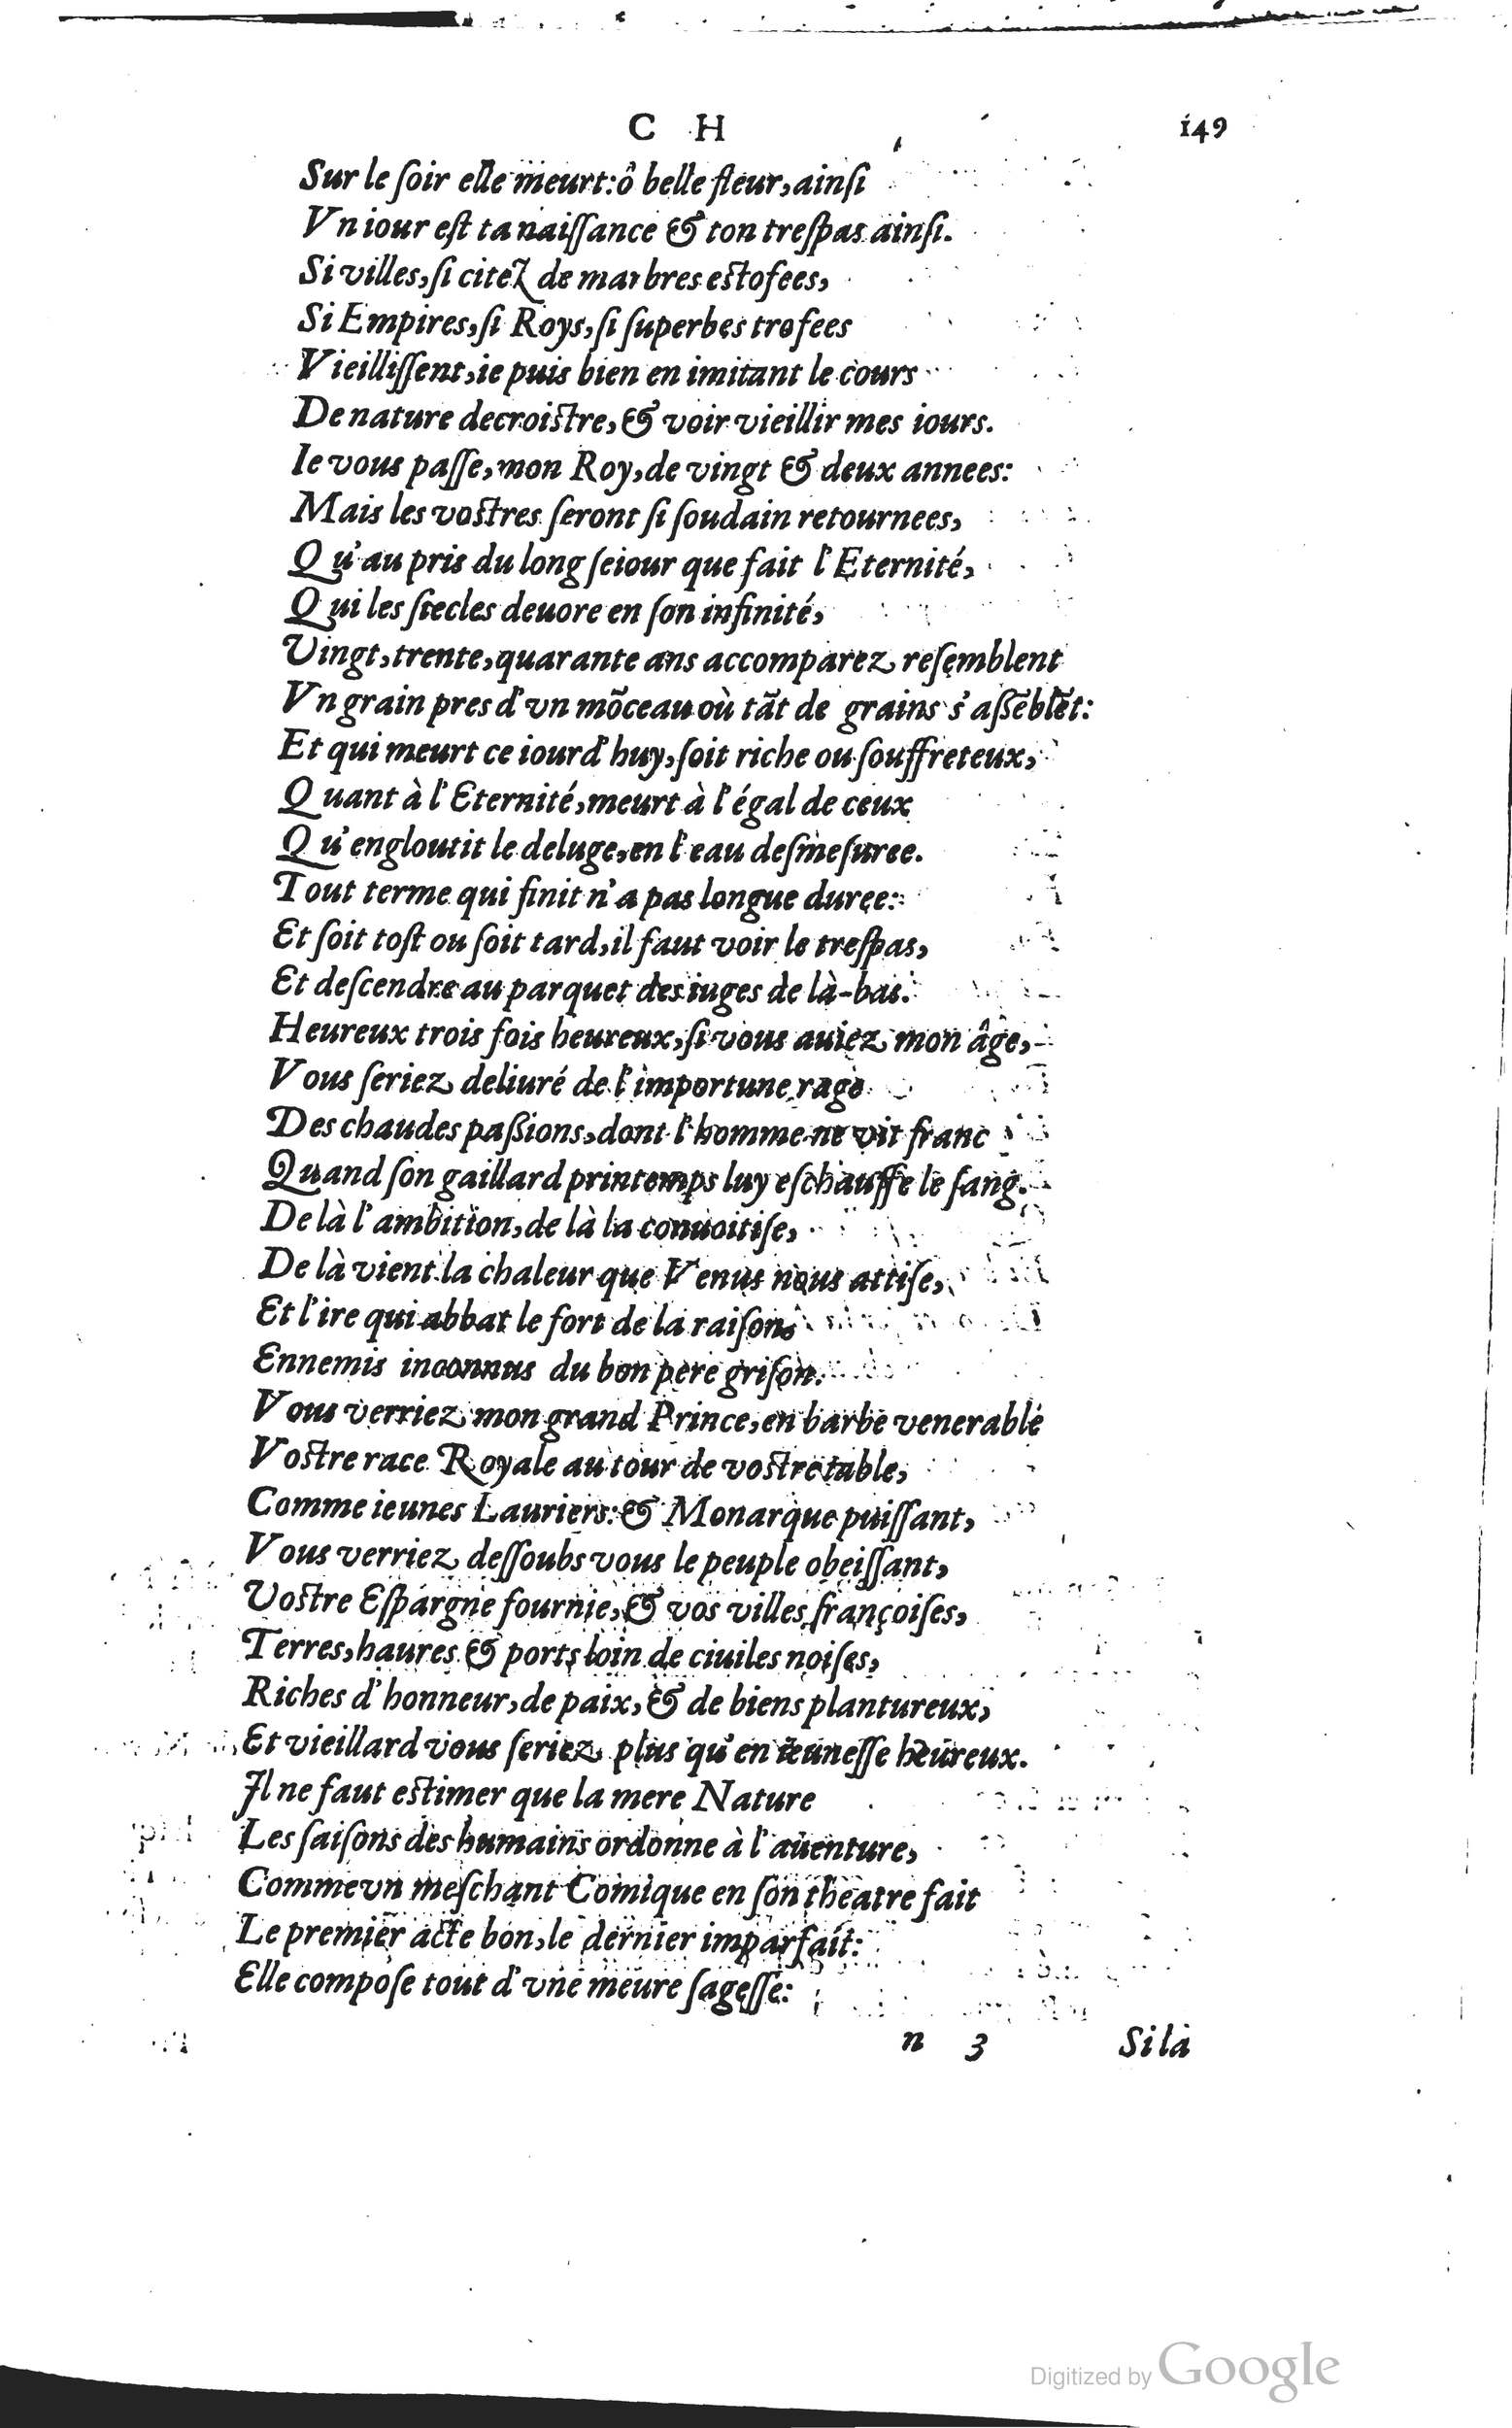 C H 149
Sur le ſoir elle meurt: ô belle fleur, ainſi
Vn iour eſt ta naiſſance & ton treſpas ainſi.
Si villes, ſi citez de marbres estofees,
Si Empires, ſi Roys, ſi ſuperbes trofees
Vieilliſſent, ie puis bien en imitant le cours
De nature decroiſtre, & voir vieillir mes iours.
Ie vous paſſe, mon Roy, de vingt & deux annees:
Mais les voſtres ſeront ſi ſoudain retournees,
Qu'au pris du long ſeiour que fait l'Eternité,
Qui les ſiecles deuore en ſon infinité,
Vingt, trente, quarante ans accomparez reſemblent
Vn grain pres d'vn mõceau où tãt de grains s'aßẽblẽt:
Et qui meurt ce iourd'huy, ſoit riche ou ſouffreteux,
Quant à l'Eternité, meurt à l'égal de ceux
Qu'engloutit le deluge, en l'eau deſmeſuree.
Tout terme qui finit n'a pas longue duree:
Et ſoit toſt ou ſoit tard, il faut voir le treſpas,
Et deſcendre au parquet des iuges de là-bas.
Heureux trois fois heureux, ſi vous auiez mon âge,
Vous ſeriez deliuré de l'importune rage
Des chaudes paßions, dont l'homme ne vit franc
Quand ſon gaillard printemps luy eſchauffe le ſang.
De là l'ambition, de là la conuoitiſe,
De là vient la chaleur que Venus nous attiſe,
Et l'ire qui abbat le fort de la raiſon,
Ennemis inconnus du bon pere griſon.
Vous verriez mon grand Prince, en barbe venerable
Voſtre race Royale au tour de voſtre table,
Comme ieunes Lauriers: & Monarque puiſſant,
Vous verriez deſſoubs vous le peuple obeiſſant,
Voſtre Eſpargne fournie, & vos villes françoiſes,
Terres, haures & ports loin de ciuiles noiſes,
Riches d'honneur, de paix, & de biens plantureux,
Et vieillard vous ſeriez plus qu'en ieuneſſe heureux.
Il ne faut eſtimer que la mere Nature
Les ſaiſons des humains ordonne à l'auenture,
Comme vn meſchant Comique en ſon theatre fait
Le premier acte bon, le dernier imparfait:
Elle compoſe tout d'vne meure ſageſſe:
n 3 Si là
Digitized by Google